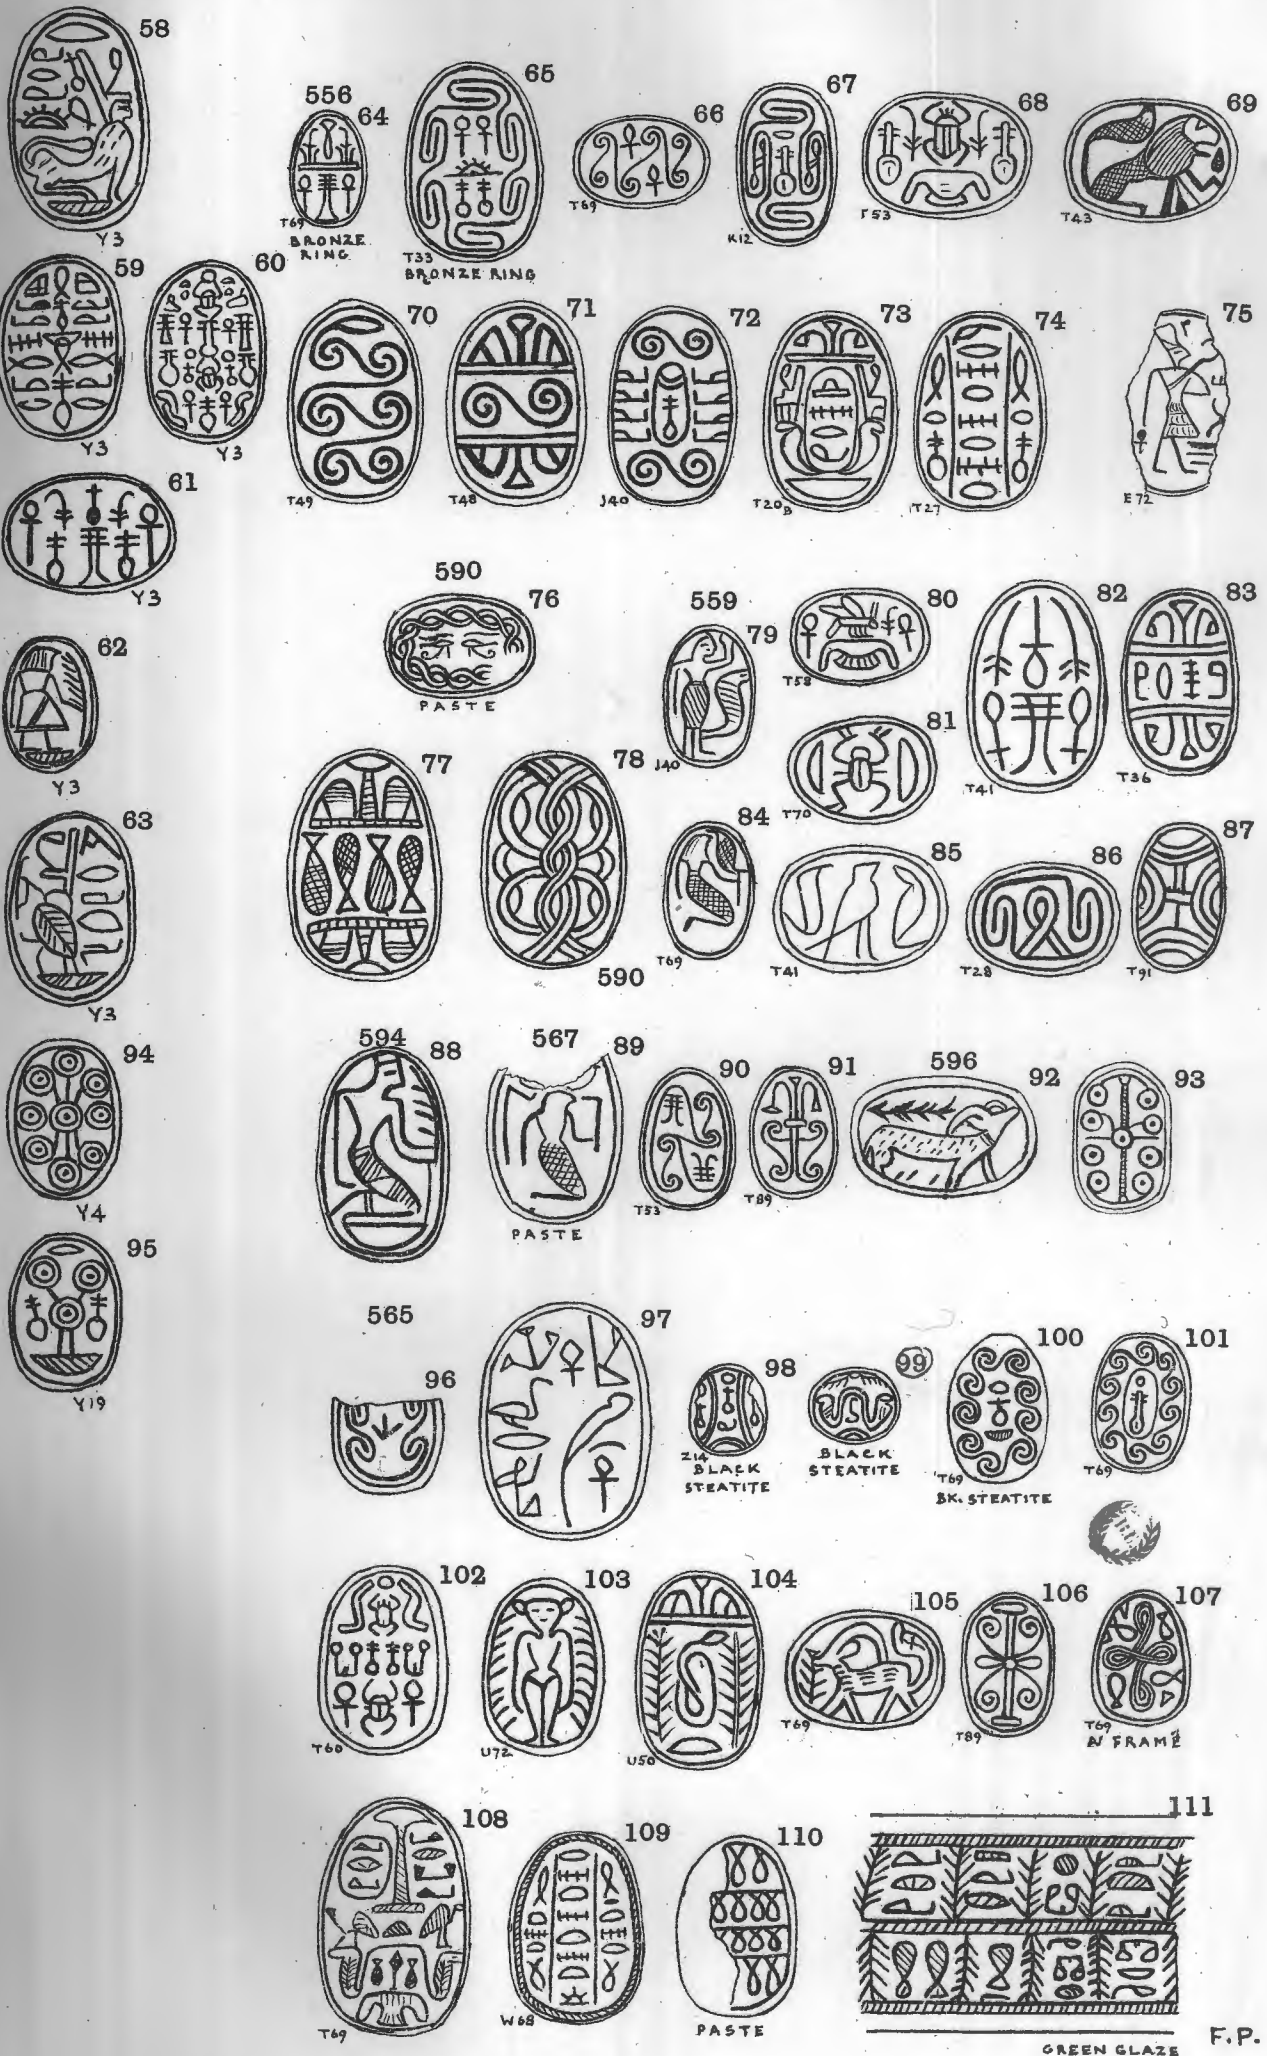 58
Y3
59
Y3
60
Y3
61
Y3
62
Y3
63
Y3
94
Y4
95
Y19
556
64
T69
BRONZE
RING
65
T33
BRONZE RING
66
T69
67
K12
68
T53
69
T43
70
T49
71
T48
72
J40
73
T20B
74
T27
75
E72
590
76
PASTE
559
79
J40
80
T58
81
T70
82
T41
83
T36
77
78
590
84
T69
85
T41
86
T28
87
T91
594
88
567
89
PASTE
90
T53
91
T89
596
92
93
565
96
97
98
Z14
BLACK
STEATITE
99
BLACK
STEATITE
100
T69
BK. STEATITE
101
T69
102
T60
103
U72
104
U50
105
T69
106
T89
107
T69
FRAME
108
T69
109
W68
110
PASTE
111
GREEN GLAZE
F.P.